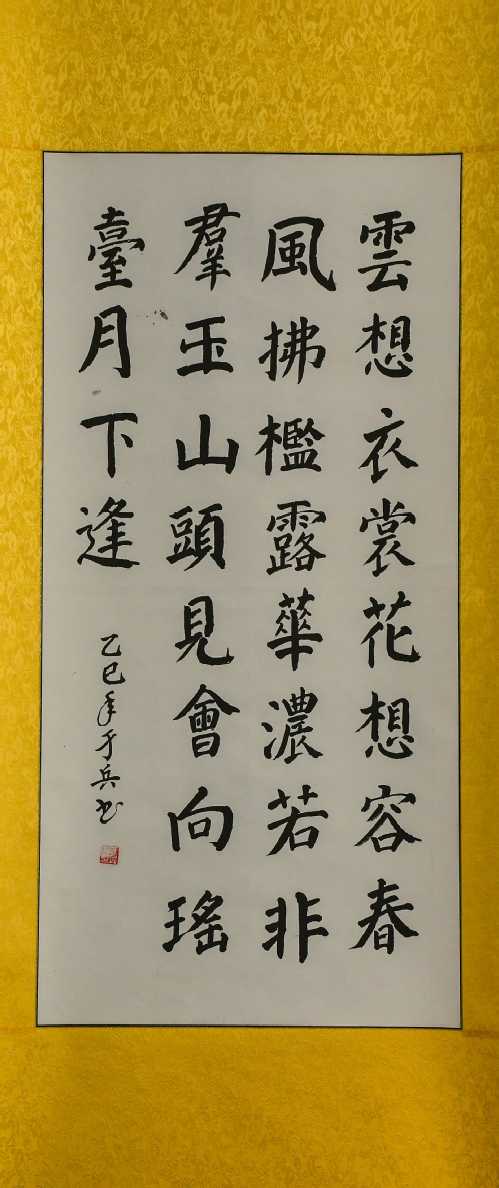 雲想衣裳花想容春
風拂檻露華濃若非
羣玉山頭見會向瑤
臺月下逢
乙巳年于兵书